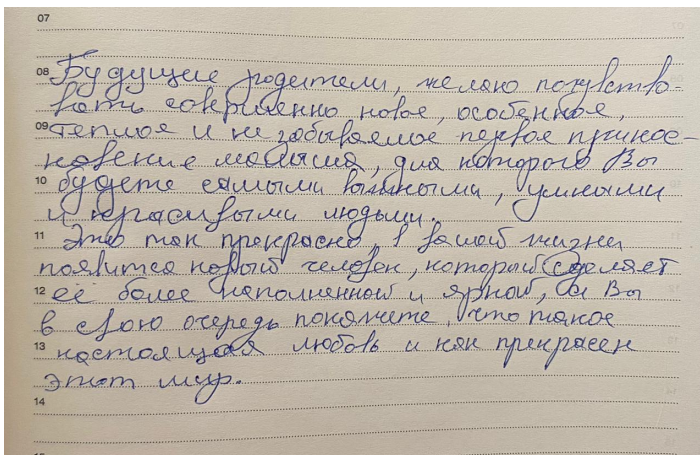 07
08 Будущие родители, желаю почувство-
вать совершенно новое, особенное,
09 теплое и незабываемое первое прикос-
новение малыша, для которого Вы
10 будете самыми важными, умными
и красивыми людьми.
11 Это так прекрасно, в вашей жизни
появится новый человек, который сделает
12 её более наполненной и яркой, а Вы
в свою очередь покажете, что такое
13 настоящая любовь и как прекрасен
этот мир.
14